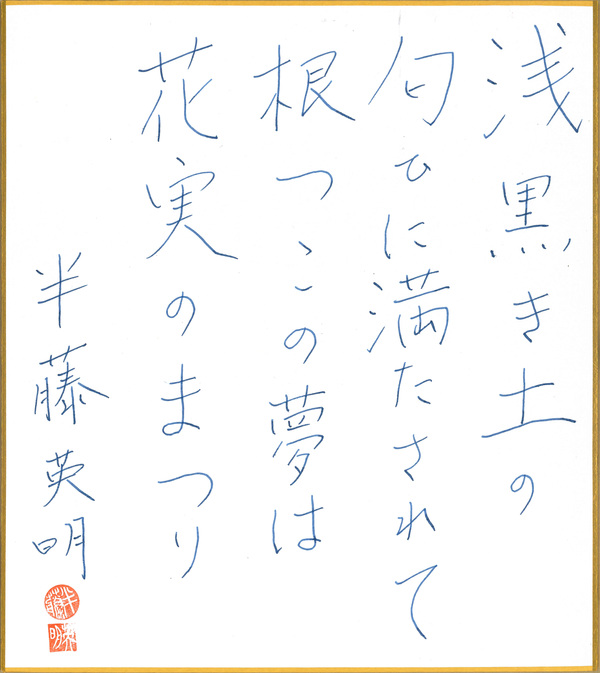 浅黒き土の
匂ひに満たされて
根つこの夢は
花実のまつり
半藤英明
半藤
英明